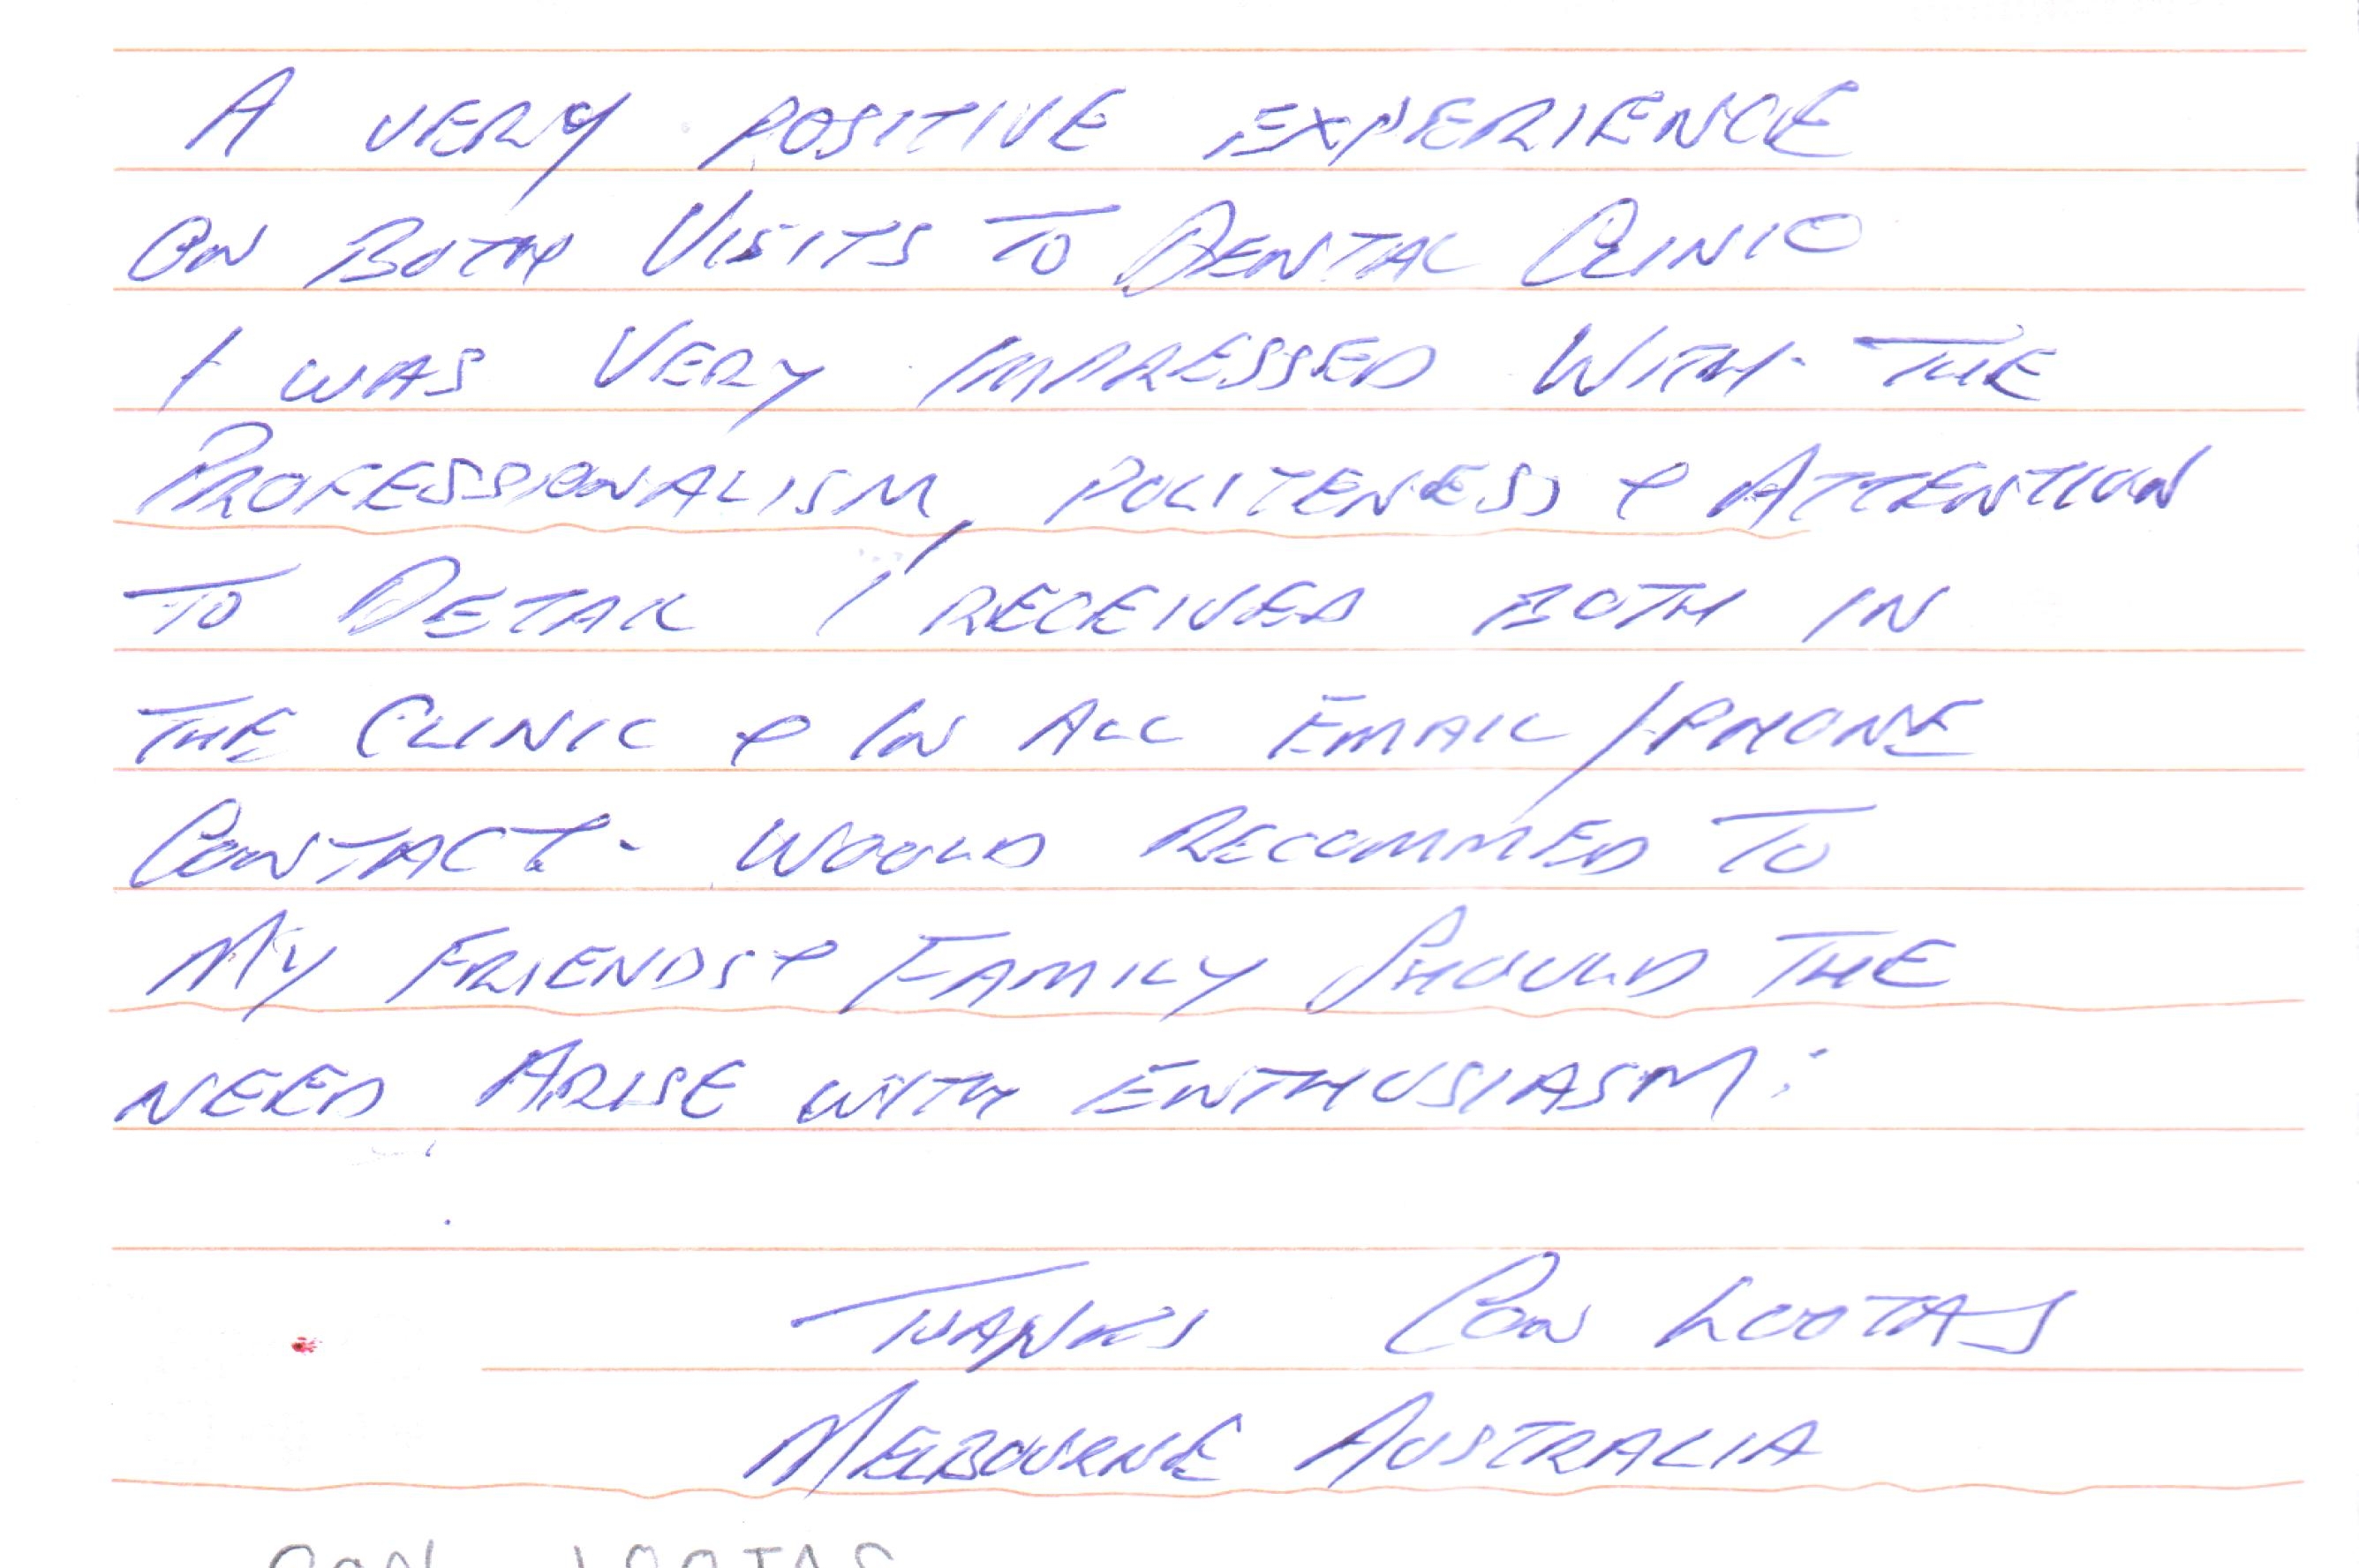 A VERY POSITIVE EXPERIENCE
ON BOTH VISITS TO DENTAL CLINIC
I WAS VERY IMPRESSED WITH THE
PROFESSIONALISM, POLITENESS & ATTENTION
TO DETAIL I RECEIVED BOTH IN
THE CLINIC & IN ALL EMAIL/PHONE
CONTACT - WOULD RECOMMED TO
MY FRIENDS & FAMILY SHOULD THE
NEED ARISE WITH ENTHUSIASM:
THANKS CON LOOTAS
MELBOURNE AUSTRALIA
CON LOOTAS